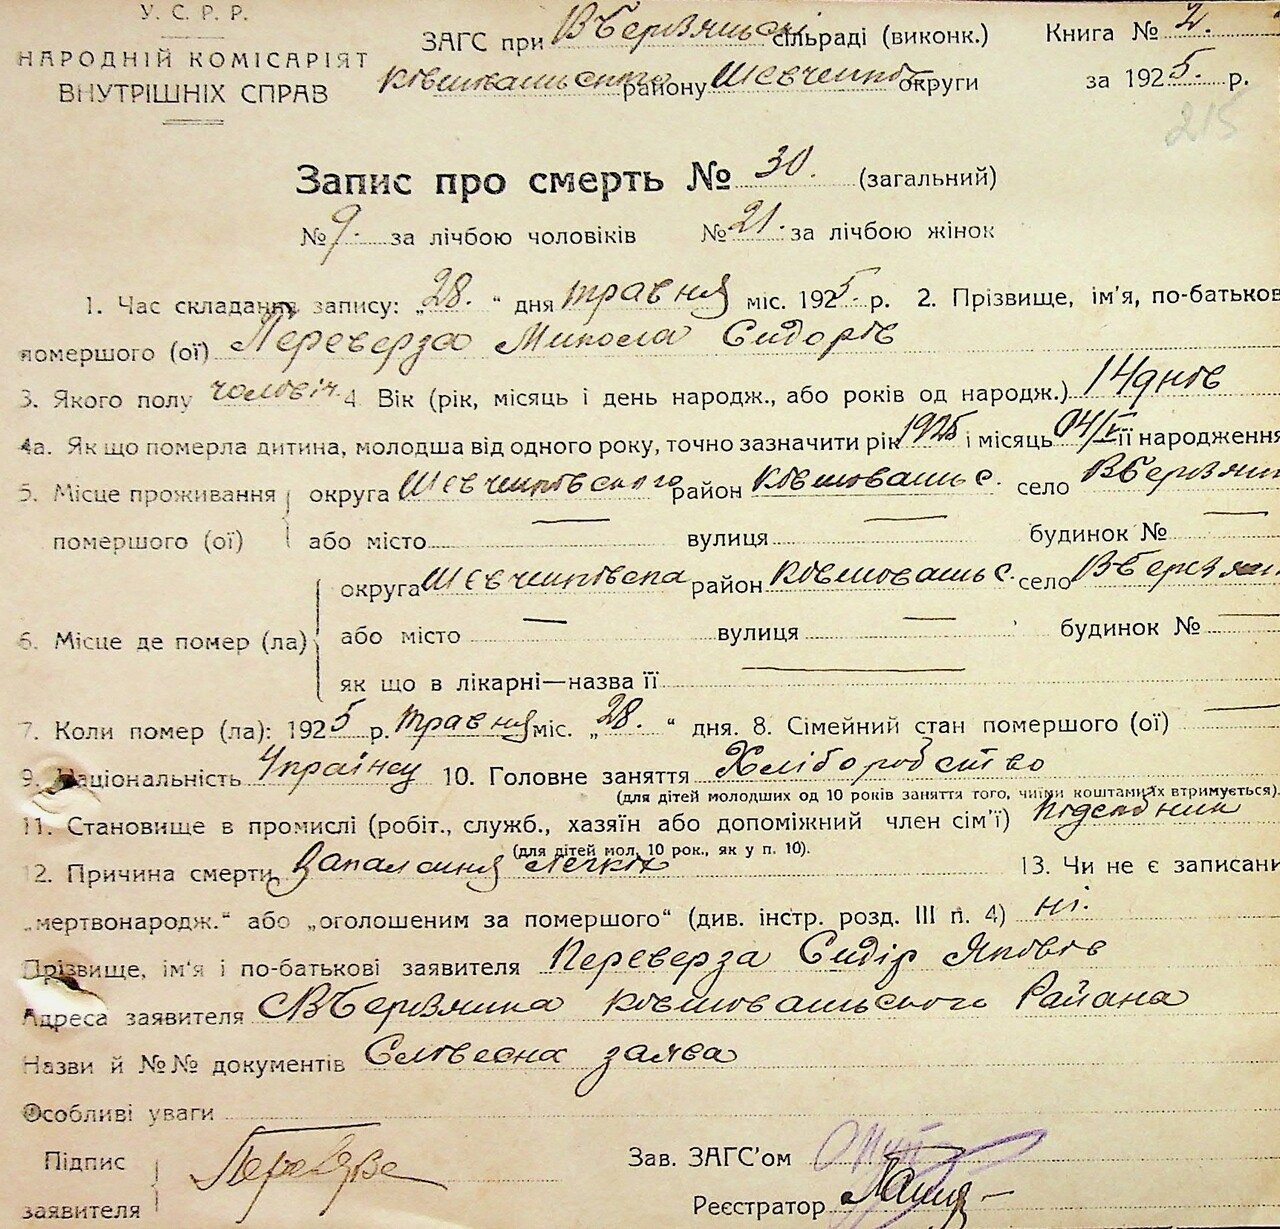 У. С. Р. Р.
НАРОДНІЙ КОМІСАРІЯТ
ВНУТРІШНІХ СПРАВ
ЗАГС при В Березянській сільраді (виконк.) Книга № 2.
району Шевченків округи за 1925 р.
215
Запис про смерть № 30. (загальний)
№ 9. за лічбою чоловіків № 21. за лічбою жінок
1. Час складання запису: „28.“ дня травня міс. 1925. р. 2. Прізвище, ім'я, по-батькові
помершого (ої) Переверза Микола Сидорів
3. Якого полу чоловіч. 4. Вік (рік, місяць і день народж., або років од народж.) 14 днів
4а. Як що померла дитина, молодша від одного року, точно зазначити рік 1925 і місяць 14/V її народження
5. Місце проживання округа Шевченківського район село
помершого (ої) або місто — вулиця — будинок № —
6. Місце де помер (ла) округа Шевченківська район село
або місто — вулиця — будинок № —
як що в лікарні—назва її —
7. Коли помер (ла): 1925 р. травня міс. „28.“ дня. 8. Сімейний стан помершого (ої) —
9. Національність Українец 10. Головне заняття Хліборобство
(для дітей молодших од 10 років заняття того, чиїми коштами їх втримується).
11. Становище в промислі (робіт., служб., хазяїн або допоміжний член сім'ї)
(для дітей мол. 10 рок., як у п. 10).
12. Причина смерти Запалення легких 13. Чи не є записани
„мертвонародж.“ або „оголошеним за помершого“ (див. інстр. розд. III п. 4) ні.
Прізвище, ім'я і по-батькові заявителя Переверза Сидір Яковів
Адреса заявителя Района
Назви й №№ документів Словесна заява
Особливі уваги
Підпис
заявителя Переверзе
Зав. ЗАГС'ом
Реєстратор